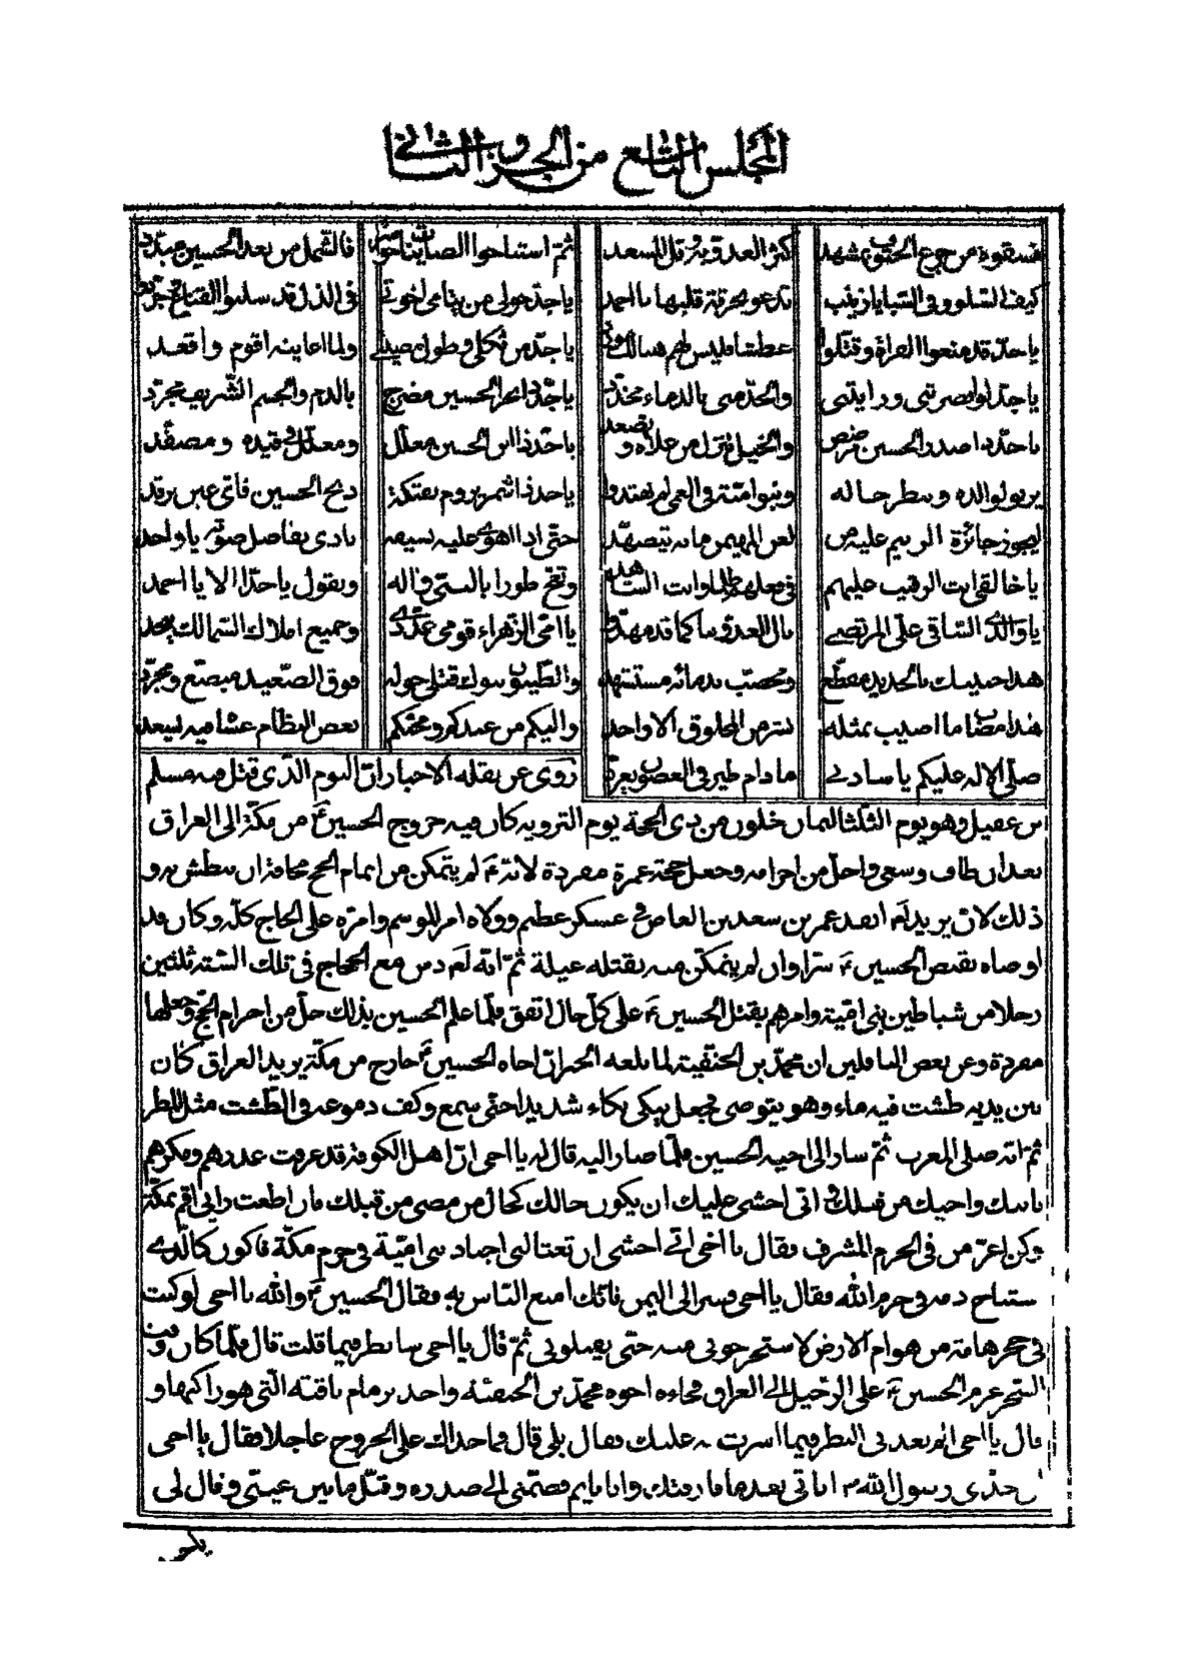 المجلس التاسع من الجزء الثاني
كثر العدو وقل المسعد ثم استباحوا فالشمل من بعد الحسين مبدد
كيف السلو وفي السبايا زينب تدعو بحرقة قلبها يا احمد يا جد حولي من يتامى اخوتي في الذل قد سلبوا القناع
يا جد قد منعوا الفرات وقتلوا عطشا فليس لهم هنالك يا جد من ثكلي وطول مصيبتي ولما اعاينه اقوم واقعد
يا جد لو ابصرتني ورايتني والخد مني بالدماء مخدد يا جد ذا نحر الحسين مضرج بالدم والجسم الشريف مجرد
يا جد ذا صدر الحسين مرضض والخيل تنزل من علاه وتصعد يا جد ذا ابن الحسين معلل ومغلل في قيده ومصفد
يرنو لوالده وينظر حاله وبنو امية في العمى لم يهتدوا يا جد ذا شمر يروم بفتكة ذبح الحسين فاي عين ترقد
حتى اذا اهوى عليه بسيفه نادى بفاضل صوته يا واحد
يا خالقي انت الرقيب عليهم في فعلهم ظلما وانت الشاهد وتقيه طورا بالنبي واله ويقول يا جدا الا يا احمد
يا والدي الساقي علي المرتضى نال العدو بنا كما قد مهدوا يا امي الزهراء قومي عددي وجميع املاك السما لك ينجد
هذا حبيبك بالحديد مقطع ومخضب بدمائه مستشهد والطيبون بنوك قتلى حوله فوق الصعيد مبضع ومجرد
هذا مصاب ما اصيب بمثله بشر من المخلوق الا واحد واليكم من عبدكم ومحبكم بعض النظام عشا فيه يسعد
صلى الاله عليكم يا سادتي ما دام طير في الغصون يغرد روى عن نقله الاخبار ان اليوم الذي قتل فيه مسلم
بن عقيل وهو يوم الثلثا لثمان خلون من ذي الحجة يوم التروية كان فيه خروج الحسين ع من مكة الى العراق
بعد ان طاف وسعى واحل من احرامه وجعل حجته عمرة مفردة لانه ع لم يتمكن من اتمام الحج مخافة ان يبطش به و
ذلك لان يزيد لع انفذ عمر بن سعد بن العاص في عسكر عظيم وولاه امر الموسم وامره على الحاج كله وكان قد
اوصاه بقبض الحسين ع سرا وان لم يتمكن منه بقتله غيلة ثم انه لع دس مع الحجاج في تلك السنة ثلثين
رجلا من شياطين بني امية وامرهم بقتل الحسين ع على كل حال اتفق فلما علم الحسين بذلك حل من احرام الحج وجعلها
مفردة وعن بعض الناقلين ان محمد بن الحنفية لما بلغه الخبر ان اخاه الحسين ع خارج من مكة يريد العراق كان
بين يديه طشت فيه ماء وهو يتوضى فجعل يبكي بكاء شديدا حتى سمع وكف دموعه في الطشت مثل المطر
ثم انه صلى المغرب ثم سار الى اخيه الحسين فلما صار اليه قال له يا اخي ان اهل الكوفة قد عرفت غدرهم ومكرهم
بابيك واخيك من قبلك واني اخشى عليك ان يكون حالك كحال من مضى من قبلك فان اطعت رايي اقم بمكة
وكن اعز من في الحرم المشرف فقال يا اخي اني اخشى ان تغتالني اجناد بني امية في حرم مكة فاكون كالذي
يستباح دمه في حرم الله فقال يا اخي فسر الى اليمن فانك امنع الناس به فقال الحسين ع والله يا اخي لو كنت
في جحر هامة من هوام الارض لاستخرجوني منه حتى يقتلوني ثم قال يا اخي سانظر فيما قلت قال فلما كان وقت
السحر عزم الحسين ع على الرحيل الى العراق فجاءه اخوه محمد بن الحنفية واخذ بزمام ناقته التي هو راكبها و
قال يا اخي الم تعدني النظر فيما اشرت به عليك فقال بلى قال فما حداك على الخروج عاجلا فقال يا اخي
ان جدي رسول الله ص اتاني بعد ما فارقتك وانا نايم فضمني الى صدره وقبل ما بين عيني وقال لي
يا حسين